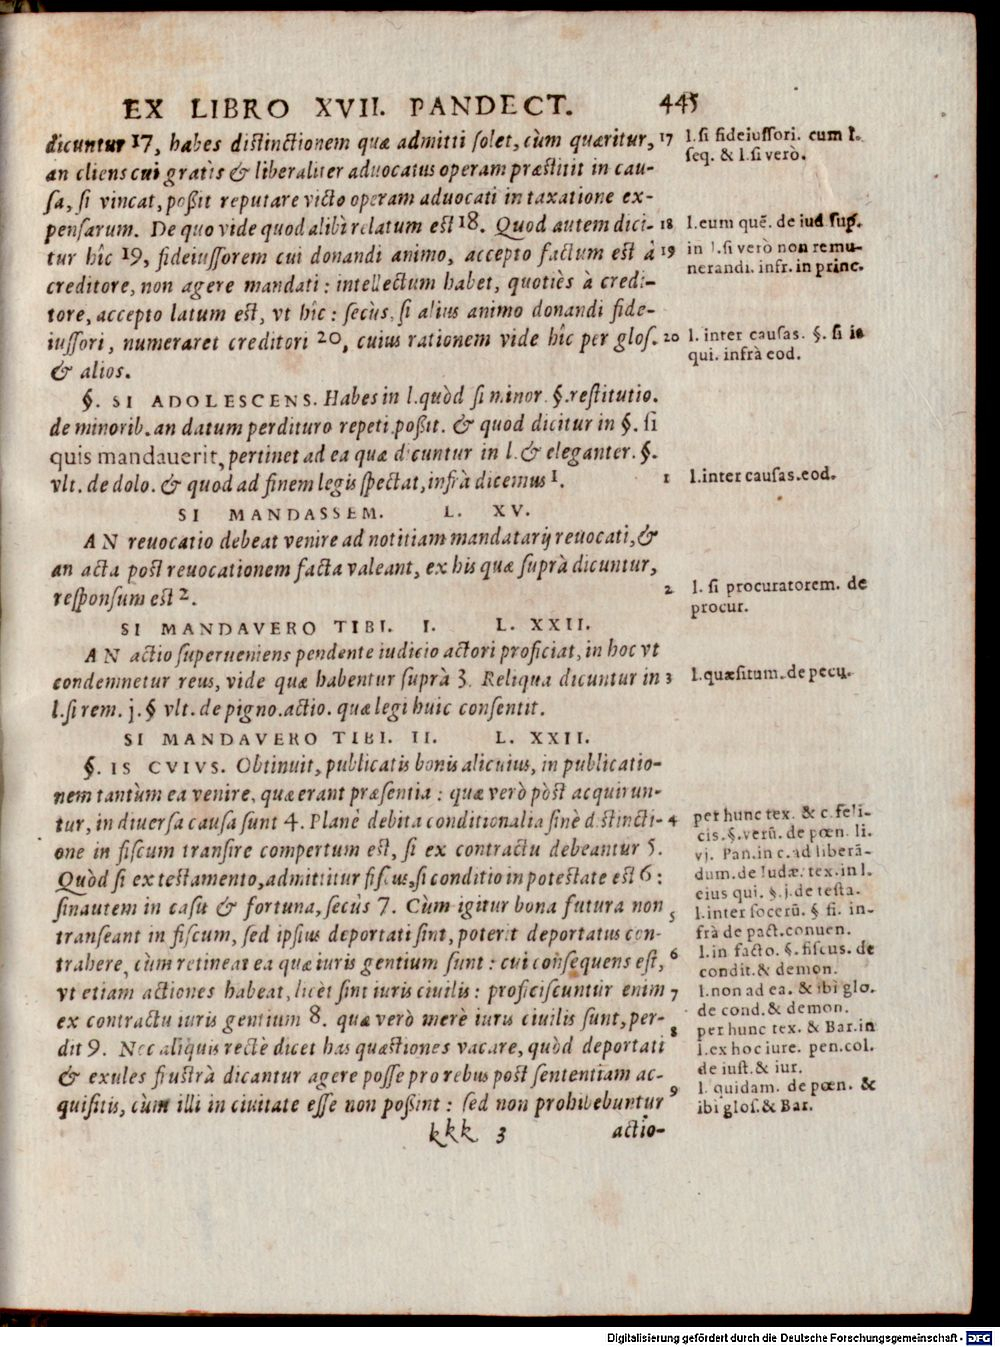 EX LIBRO XVII. PANDECT. 445
dicuntur 17, habes distinctionem quæ admitti solet, cùm quæritur,
an cliens cui gratis & liberaliter aduocatus operam præstitit in cau-
sa, si vincat, poßit reputare victo operam aduocati in taxatione ex-
pensarum. De quo vide quod alibi relatum est 18. Quod autem dici-
tur hîc 19, fideiussorem cui donandi animo, accepto factum est à
creditore, non agere mandati: intellectum habet, quotiès à credi-
tore, accepto latum est, vt hîc: secùs, si alius animo donandi fide-
iussori, numeraret creditori 20, cuius rationem vide hîc per glos.
& alios.
§. SI ADOLESCENS. Habes in l. quòd si minor. §. restitutio.
de minorib. an datum perdituro repeti poßit. & quod dicitur in §. si
quis mandauerit, pertinet ad ea quæ dicuntur in l. & eleganter. §.
vlt. de dolo. & quod ad finem legis spectat, infrà dicemus 1.
SI MANDASSEM. L. XV.
AN reuocatio debeat venire ad notitiam mandatarij reuocati, &
an acta post reuocationem facta valeant, ex his quæ suprà dicuntur,
responsum est 2.
SI MANDAVERO TIBI. I. L. XXII.
AN actio superueniens pendente iudicio actori proficiat, in hoc vt
condemnetur reus, vide quæ habentur suprà 3. Reliqua dicuntur in
l. si rem. j. § vlt. de pigno. actio. quæ legi huic consentit.
SI MANDAVERO TIBI. II. L. XXII.
§. IS CVIVS. Obtinuit, publicatis bonis alicuius, in publicatio-
nem tantùm ea venire, quæ erant præsentia: quæ verò pòst acquirun-
tur, in diuersa causa sunt 4. Planè debita conditionalia sinè distincti-
one in fiscum transire compertum est, si ex contractu debeantur 5.
Quòd si ex testamento, admittitur fiscus, si conditio in potestate est 6:
sinautem in casu & fortuna, secùs 7. Cùm igitur bona futura non
transeant in fiscum, sed ipsius deportati sint, poterit deportatus con-
trahere, cùm retineat ea quæ iuris gentium sunt: cui consequens est,
vt etiam actiones habeat, licèt sint iuris ciuilis: proficiscuntur enim
ex contractu iuris gentium 8. quæ verò merè iuris ciuilis sunt, per-
dit 9. Nec aliquis rectè dicet has quæstiones vacare, quòd deportati
& exules frustrà dicantur agere posse pro rebus post sententiam ac-
quisitis, cùm illi in ciuitate esse non poßint: sed non prohibebuntur
kkk 3 actio-
17 l. si fideiussori. cum l.
seq. & l. si verò.
18 l. eum quẽ. de iud sup.
19 in l. si verò non remu-
nerandi. infr. in princ.
20 l. inter causas. §. si is
qui. infrà eod.
1 l. inter causas. eod.
2 l. si procuratorem. de
procur.
3 l. quæsitum. de pecu.
4 per hunc tex. & c. feli-
cis. §. verũ. de pœn. li.
vj. Pan. in c. ad liberã-
dum. de Iudæ. tex. in l.
eius qui. §. j. de testa.
5 l. inter socerũ. § fi. in-
frà de pact. conuen.
6 l. in facto. §. fiscus. de
condit. & demon.
7 l. non ad ea. & ibi glo.
de cond. & demon.
8 per hunc tex. & Bar. in
l. ex hoc iure. pen. col.
de iust. & iur.
9 l. quidam. de pœn. &
ibi glos. & Bar.
Digitalisierung gefördert durch die Deutsche Forschungsgemeinschaft - DFG